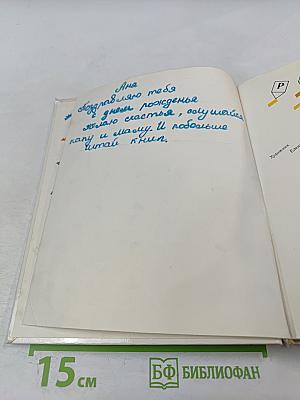 Аня
Поздравляю тебя
с днем рожденья
желаю счастья, слушайся
папу и маму. И побольше
читай книг.
Р
Художник
15 см
БФ БИБЛИОФАН